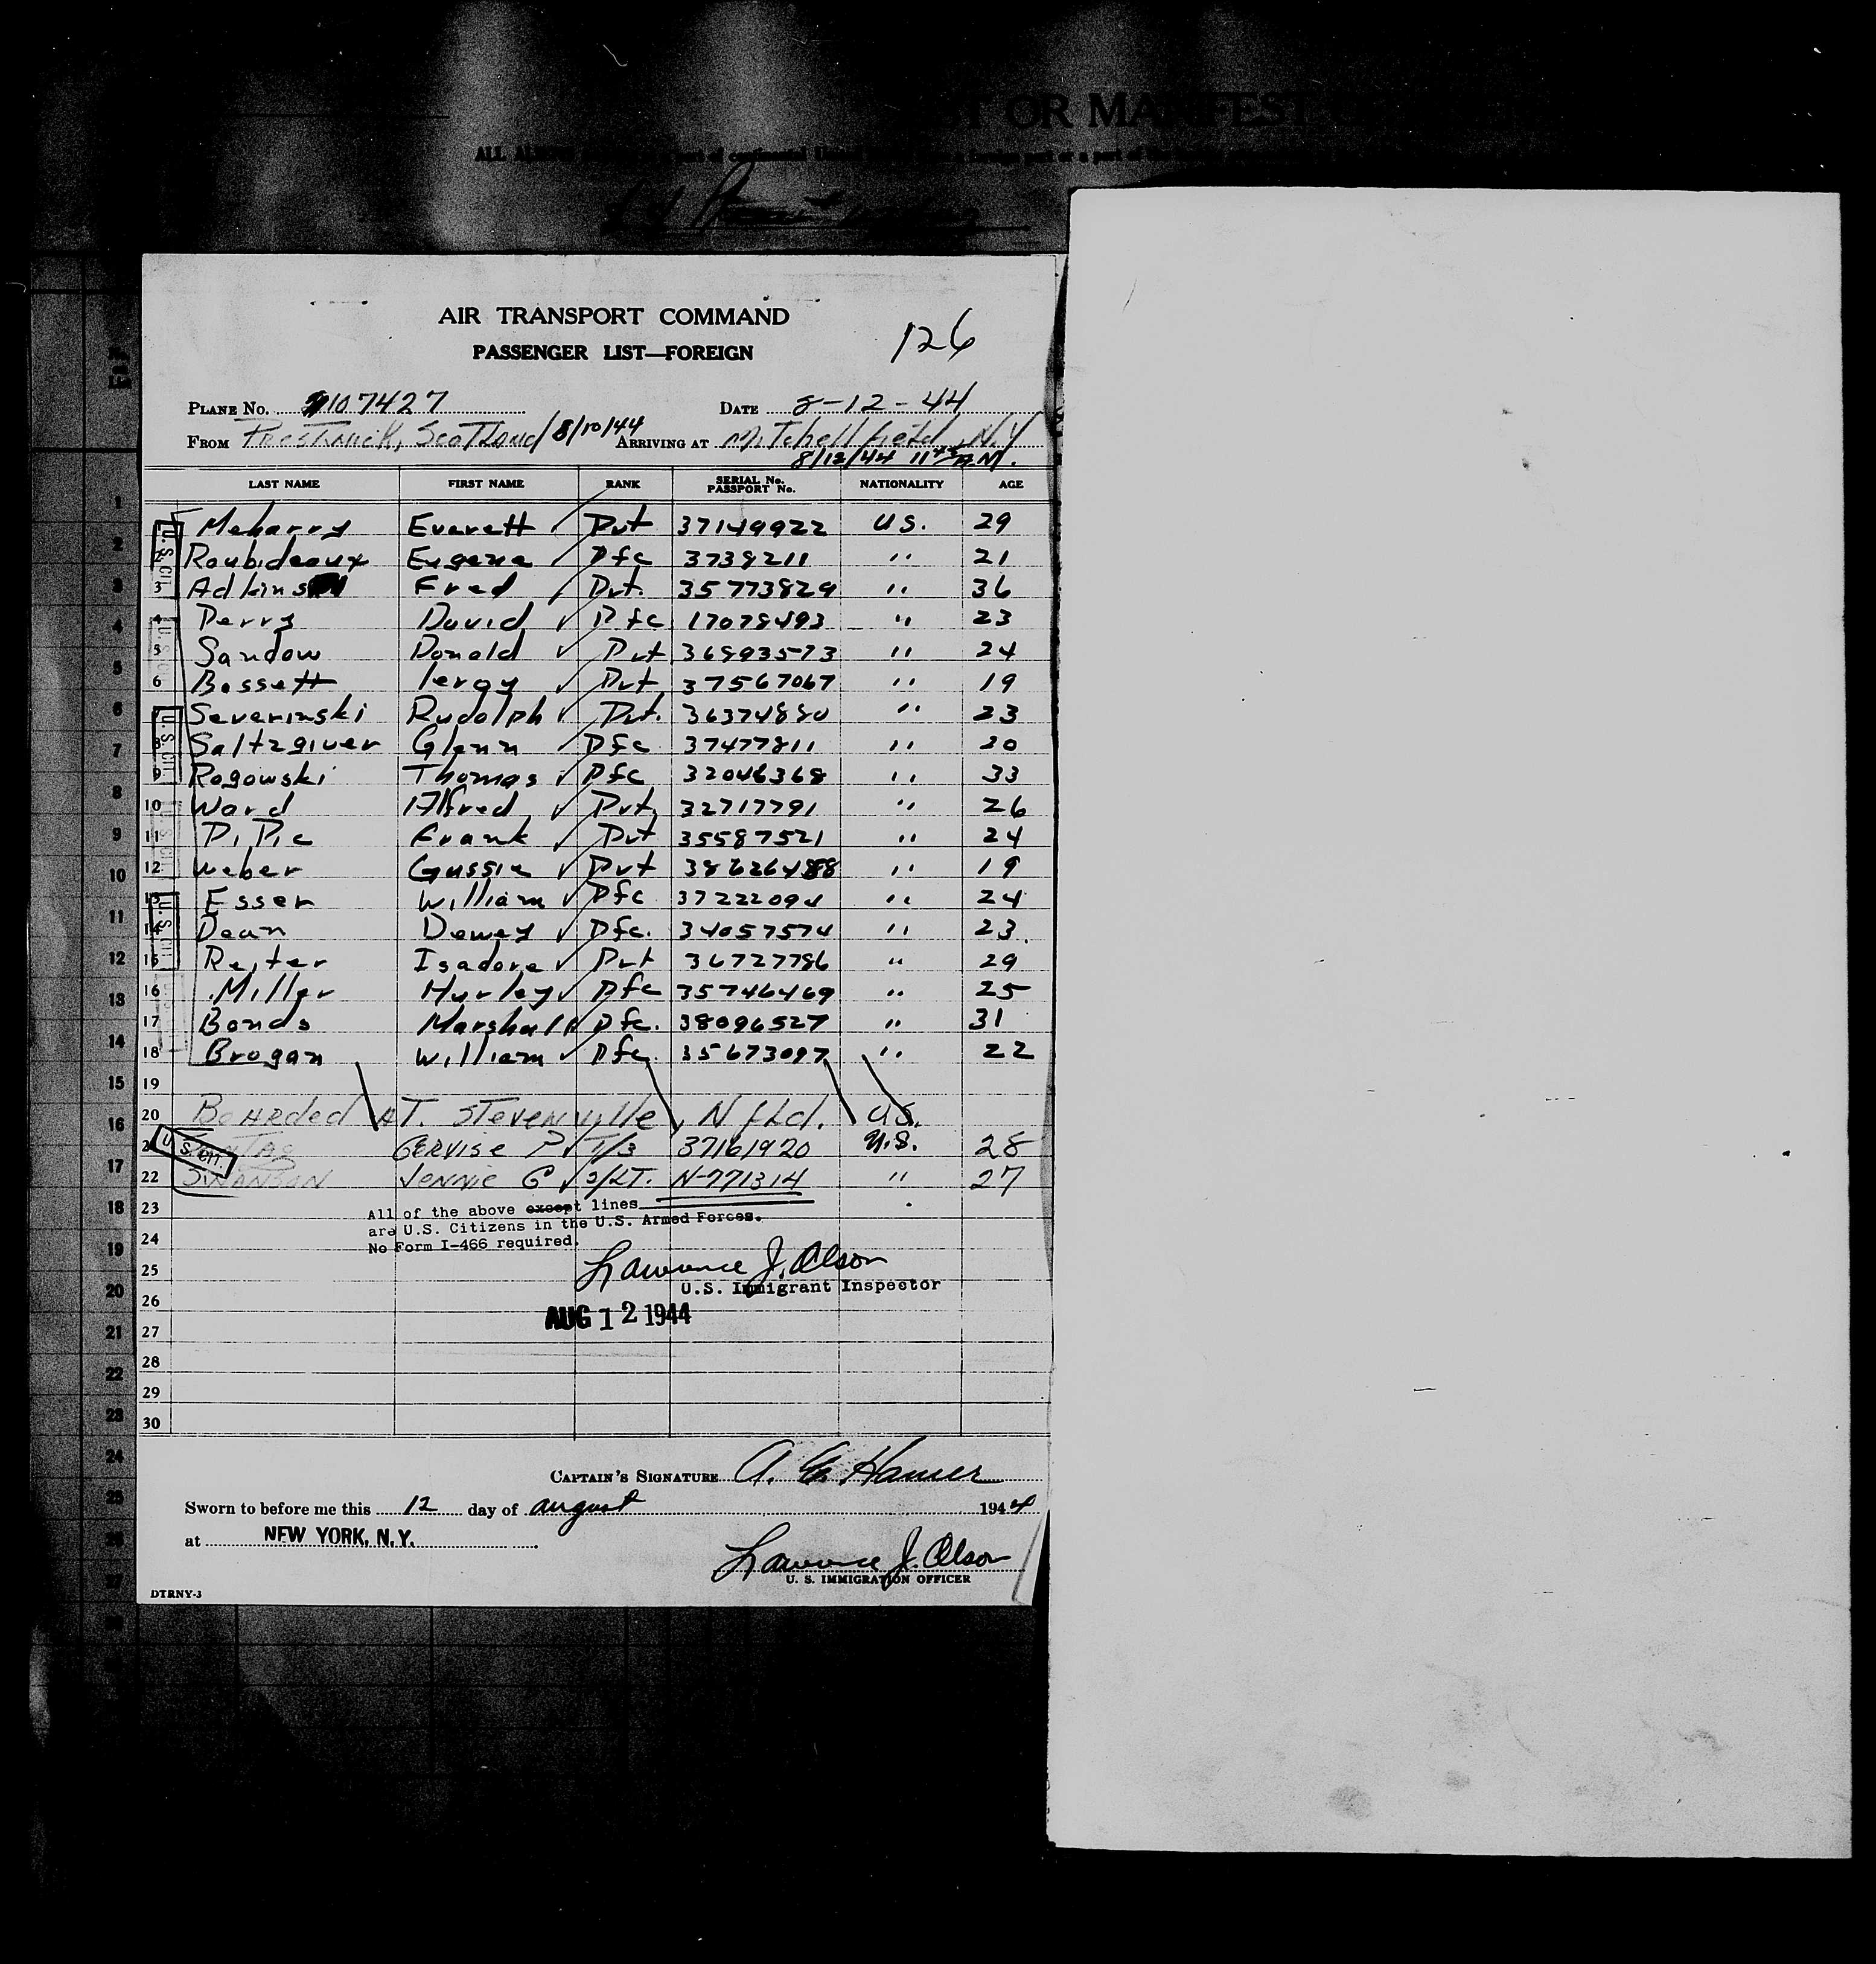 OR MANIFEST
AIR TRANSPORT COMMAND
PASSENGER LIST—FOREIGN
126
PLANE No. 107427 DATE 8-12-44
FROM Prestwick, Scotland/8/10/44 ARRIVING AT Mitchell Field, N.Y
8/12/44 11 45 A.M.
LAST NAME FIRST NAME RANK SERIAL No. PASSPORT No. NATIONALITY AGE
Meharry Everett Pvt 37149922 U.S. 29
Roubideaux Eugene Pfc 3738211 " 21
3 Adkins Fred Pvt. 35773829 " 36
4 Perry David Pfc 17078493 " 23
5 Sandow Donald Pvt 36893573 " 24
6 Bassett leroy Pvt 37567067 " 19
Severinski Rudolph Pvt. 36374880 " 23
8 Saltzgiver Glenn Pfc 37477811 " 30
9 Rogowski Thomas Pfc 32046368 " 33
10 Ward Alfred Pvt. 32717791 " 26
11 Di Pic Frank Pvt 35587521 " 24
12 Weber Gussie Pvt 38626488 " 19
13 Esser William Pfc 37222094 " 24
14 Dean Dewey Pfc. 34057574 " 23
15 Reiter Isadore Pvt 36727786 " 29
16 Miller Hurley Pfc 35746469 " 25
17 Bonds Marshall Pfc. 38096527 " 31
18 Brogan William Pfc. 35673097 " 22
19
20 Boarded AT. Stevenville, Nfld. U.S.
U.S. CIT. Gervise P T/3 37161920 U.S. 28
22 Swanson Jennie G 2/LT. N-771314 " 27
23 All of the above except lines
are U.S. Citizens in the U.S. Armed Forces.
24 No Form I-466 required.
25 Lawrence J. Olson
U.S. Immigrant Inspector
26
AUG 12 1944
27
28
29
30
CAPTAIN'S SIGNATURE A. G. Hamer
Sworn to before me this 12 day of august 1944
at NEW YORK, N.Y.
Lawrence J. Olson
U. S. IMMIGRATION OFFICER
DTRNY-3